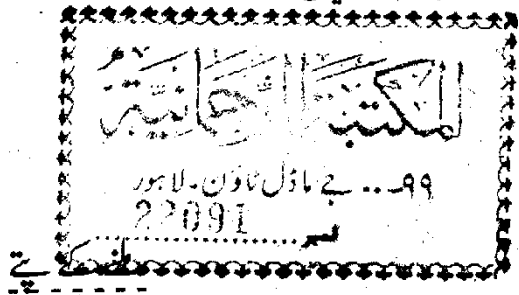 المکتبۃ الرحمانیۃ
۹۹.. جے ماڈل ٹاؤن۔ لاہور
22091
نمبر....................
ملنے کے پتے